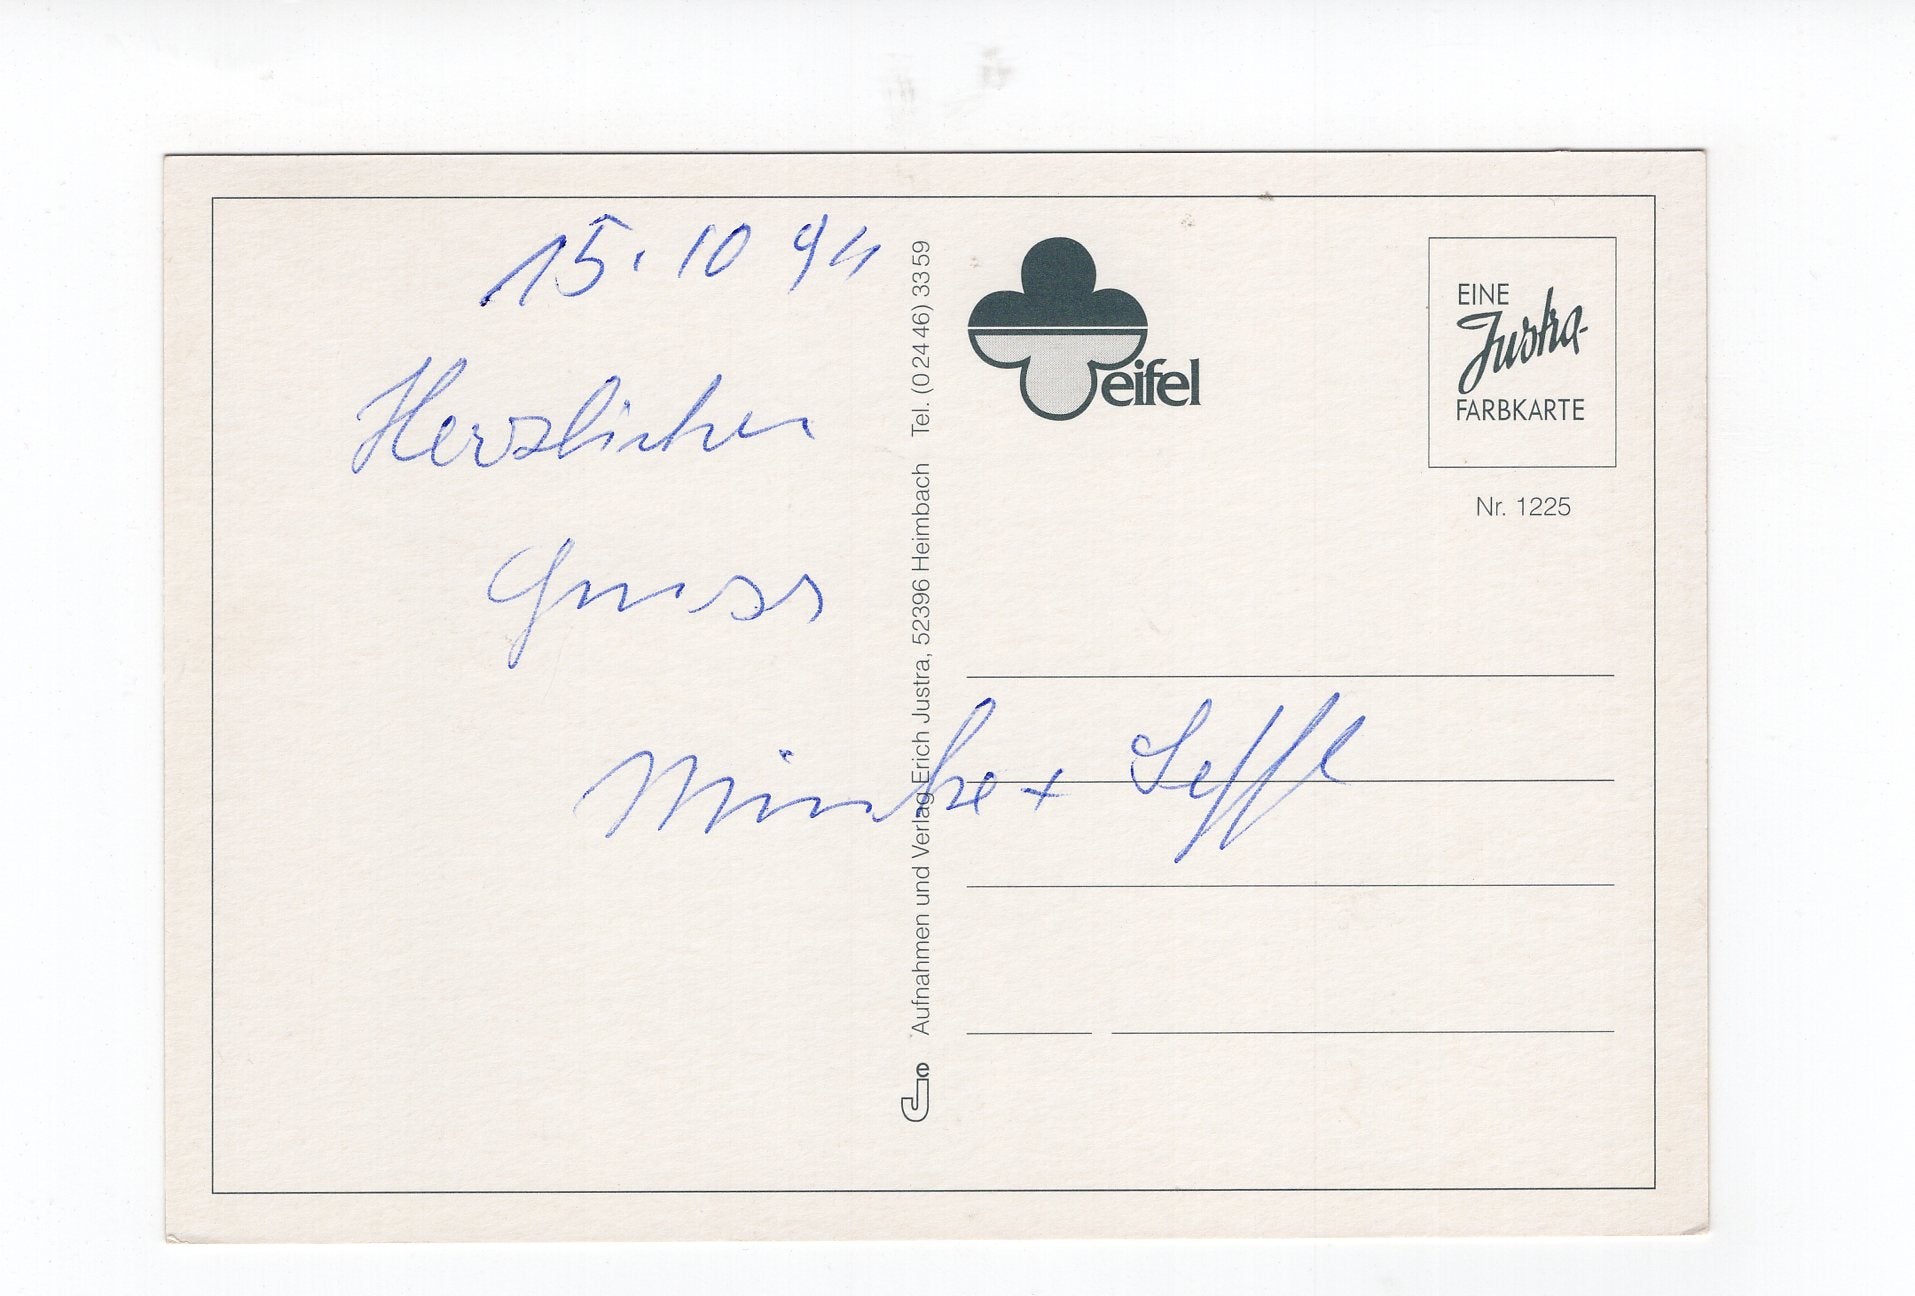 15. 10 94
Herzlichen
Gruss
Minche + Seffl
Aufnahmen und Verlag Erich Justra, 52396 Heimbach Tel. (0 24 46) 33 59
eifel
EINE
Justra-
FARBKARTE
Nr. 1225